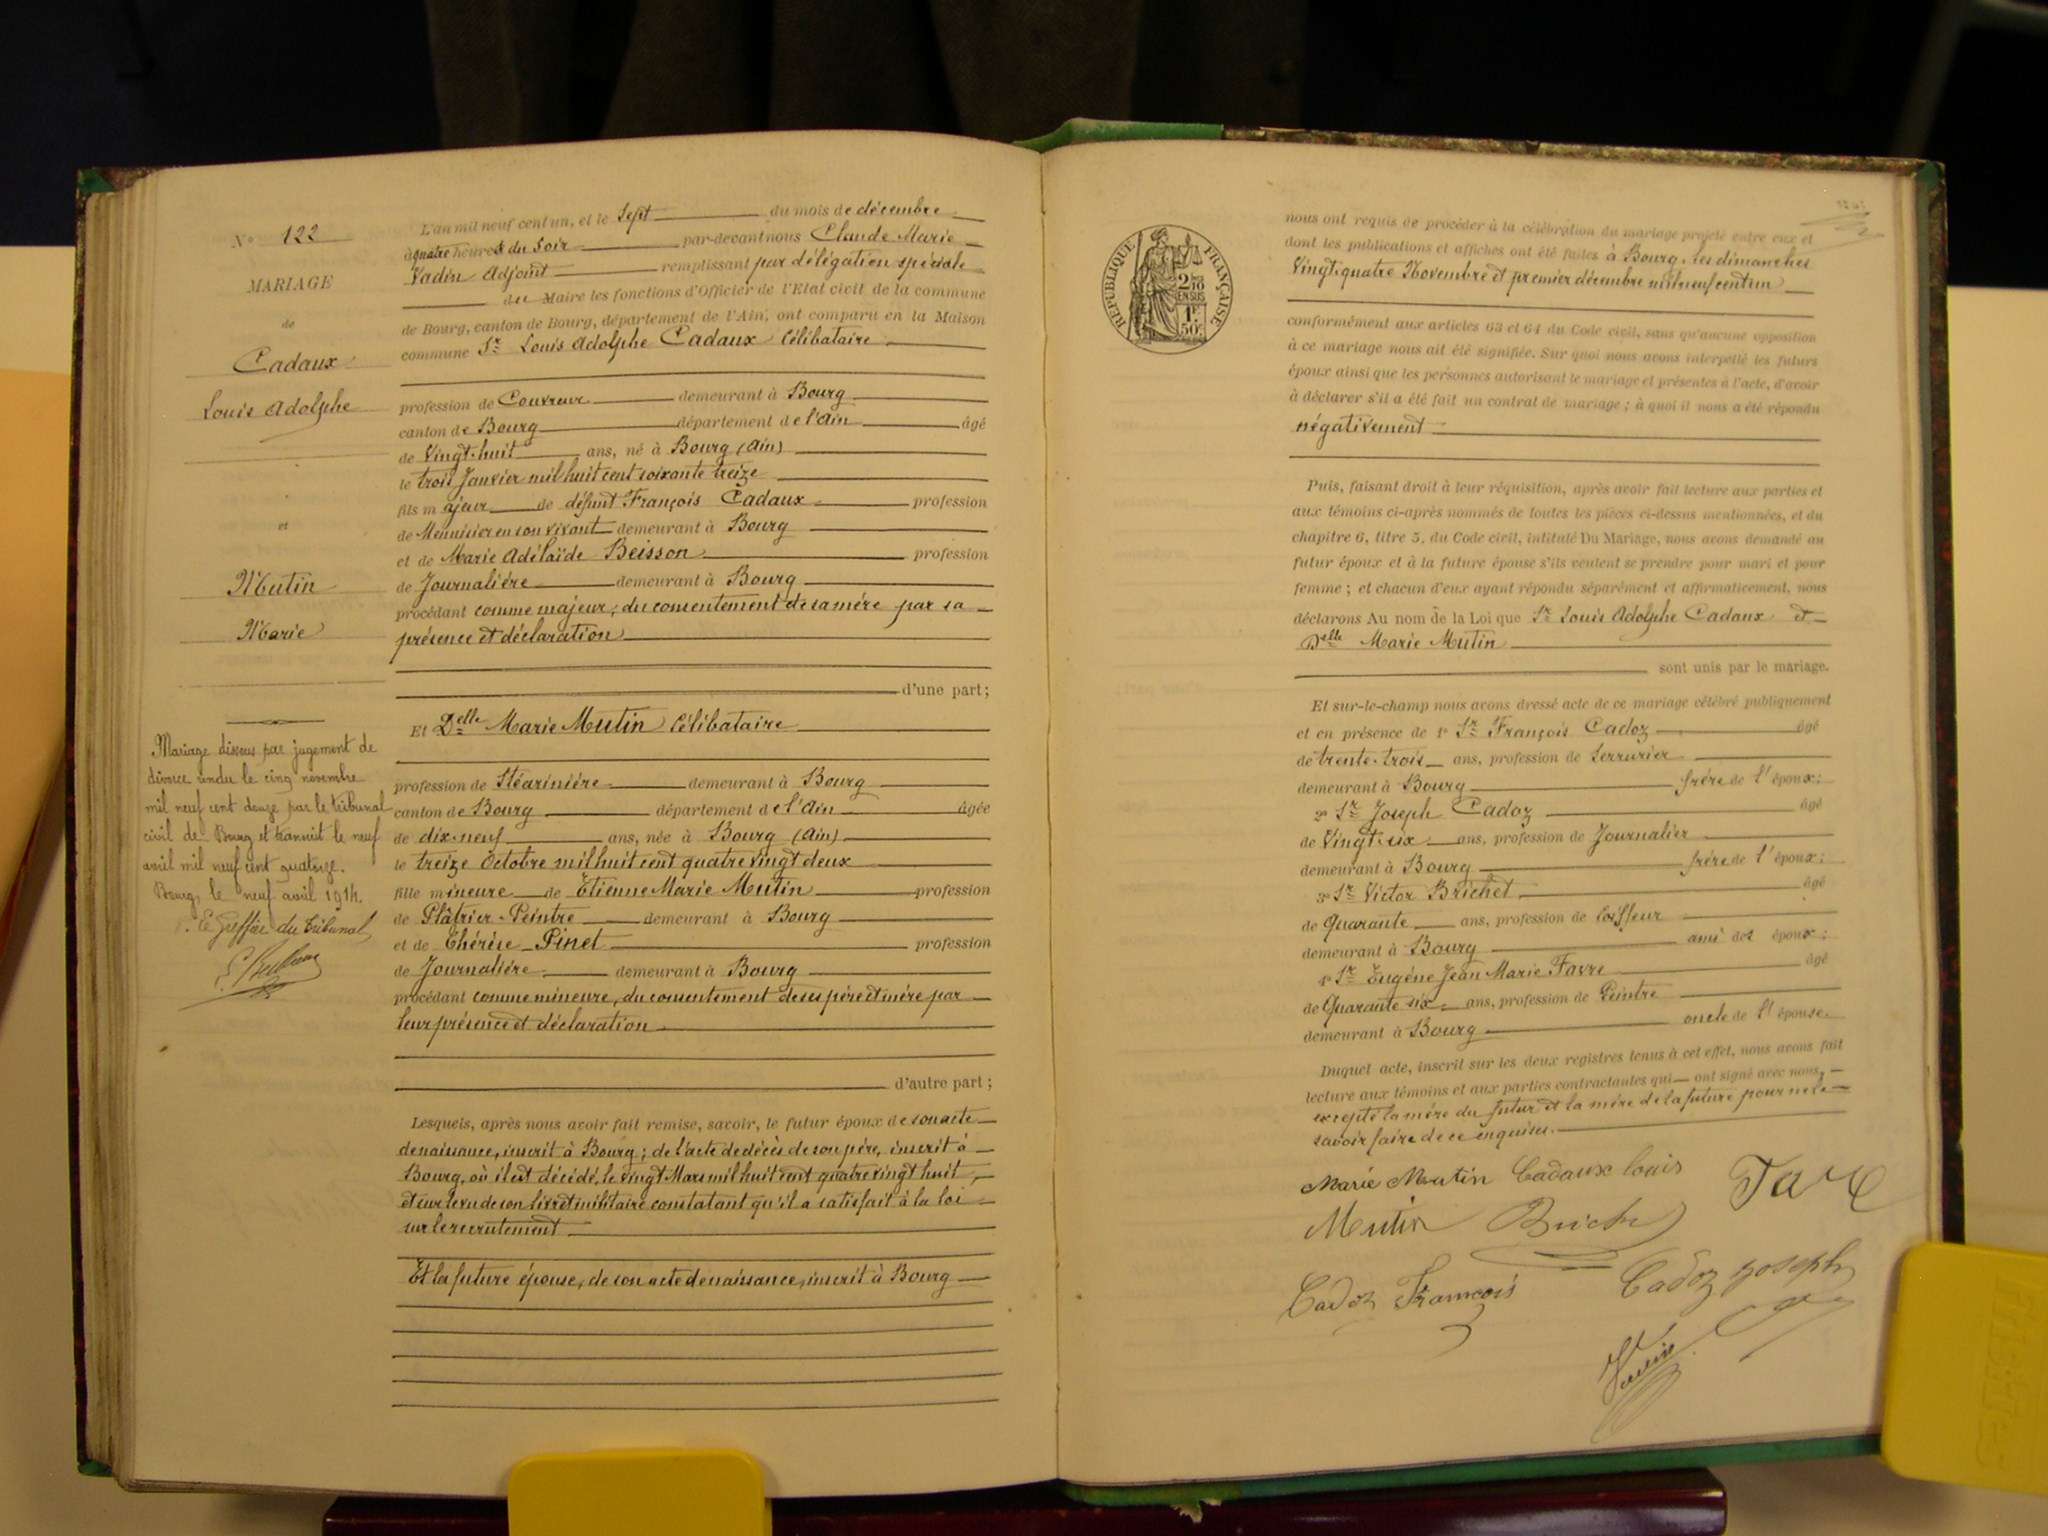 N° 122
MARIAGE
de
Cadaux
Louis Adolphe
et
Mutin
Marie
Mariage dissous par jugement de
divorce rendu le cinq novembre
mil neuf cent douze par le tribunal
civil de Bourg et transcrit le neuf
avril mil neuf cent quatorze.
Bourg, le neuf avril 1914.
Le Greffier du Tribunal
L'an mil neuf cent un, et le Sept du mois de décembre
à quatre heures du Soir par-devant nous Claude Marie
Vadin Adjoint remplissant par délégation spéciale
du Maire les fonctions d'Officier de l'Etat civil de la commune
de Bourg, canton de Bourg, département de l'Ain, ont comparu en la Maison
commune Sr Louis Adolphe Cadaux Célibataire
profession de Couvreur demeurant à Bourg
canton de Bourg département de l'Ain âgé
de Vingt-huit ans, né à Bourg (Ain)
le trois Janvier mil huit cent soixante treize
fils majeur de défunt François Cadaux profession
de Menuisier en son vivant demeurant à Bourg
et de Marie Adélaïde Beisson profession
de Journalière demeurant à Bourg
procédant comme majeur, du consentement de sa mère par sa
présence et déclaration
d'une part;
Et Delle Marie Mutin Célibataire
profession de Stéarinière demeurant à Bourg
canton de Bourg département de l'Ain âgée
de dix-neuf ans, née à Bourg (Ain)
le treize Octobre mil huit cent quatre vingt deux
fille mineure de Etienne Marie Mutin profession
de Plâtrier-Peintre demeurant à Bourg
et de Thérèse Pinet profession
de Journalière demeurant à Bourg
procédant comme mineure, du consentement de ses père et mère par
leur présence et déclaration
d'autre part;
Lesquels, après nous avoir fait remise, savoir, le futur époux de son acte
de naissance, inscrit à Bourg; de l'acte de décès de son père, inscrit à
Bourg, où il est décédé, le vingt Mars mil huit cent quatre vingt huit,
et sur le vu de son livret militaire constatant qu'il a satisfait à la loi
sur le recrutement
Et la future épouse, de son acte de naissance, inscrit à Bourg
RÉPUBLIQUE FRANÇAISE
2/10
EN SUS
1F
50c
nous ont requis de procéder à la célébration du mariage projeté entre eux et
dont les publications et affiches ont été faites à Bourg, les dimanches
Vingt-quatre Novembre et premier décembre mil neuf cent un
conformément aux articles 63 et 64 du Code civil, sans qu'aucune opposition
à ce mariage nous ait été signifiée. Sur quoi nous avons interpellé les futurs
époux ainsi que les personnes autorisant le mariage et présentes à l'acte, d'avoir
à déclarer s'il a été fait un contrat de mariage; à quoi il nous a été répondu
négativement
Puis, faisant droit à leur réquisition, après avoir fait lecture aux parties et
aux témoins ci-après nommés de toutes les pièces ci-dessus mentionnées, et du
chapitre 6, titre 5, du Code civil, intitulé Du Mariage, nous avons demandé au
futur époux et à la future épouse s'ils veulent se prendre pour mari et pour
femme; et chacun d'eux ayant répondu séparément et affirmativement, nous
déclarons Au nom de la Loi que Sr Louis Adolphe Cadaux et
Delle Marie Mutin
sont unis par le mariage.
Et sur-le-champ nous avons dressé acte de ce mariage célébré publiquement
et en présence de 1° Sr François Cadoz âgé
de trente-trois ans, profession de Serrurier
demeurant à Bourg frère de l'époux;
2° Sr Joseph Cadoz âgé
de Vingt-six ans, profession de Journalier
demeurant à Bourg frère de l'époux;
3° Sr Victor Brichet âgé
de Quarante ans, profession de Coiffeur
demeurant à Bourg ami des époux;
4° Sr Eugène Jean Marie Favre âgé
de Quarante six ans, profession de Peintre
demeurant à Bourg oncle de l'épouse.
Duquel acte, inscrit sur les deux registres tenus à cet effet, nous avons fait
lecture aux témoins et aux parties contractantes qui ont signé avec nous,
excepté la mère du futur et la mère de la future pour ne le
savoir faire de ce enquises.
Marie Mutin Cadaux louis
Mutin
Cadoz François Cadoz Joseph
Vadin